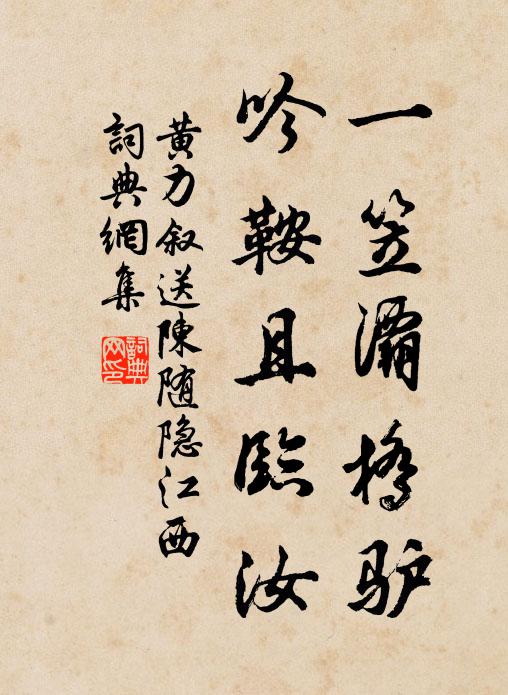 一笠灞橋驴
吟鞍且臨汝
黄力叙送陳随隐江西
詞典網集
詞典网印